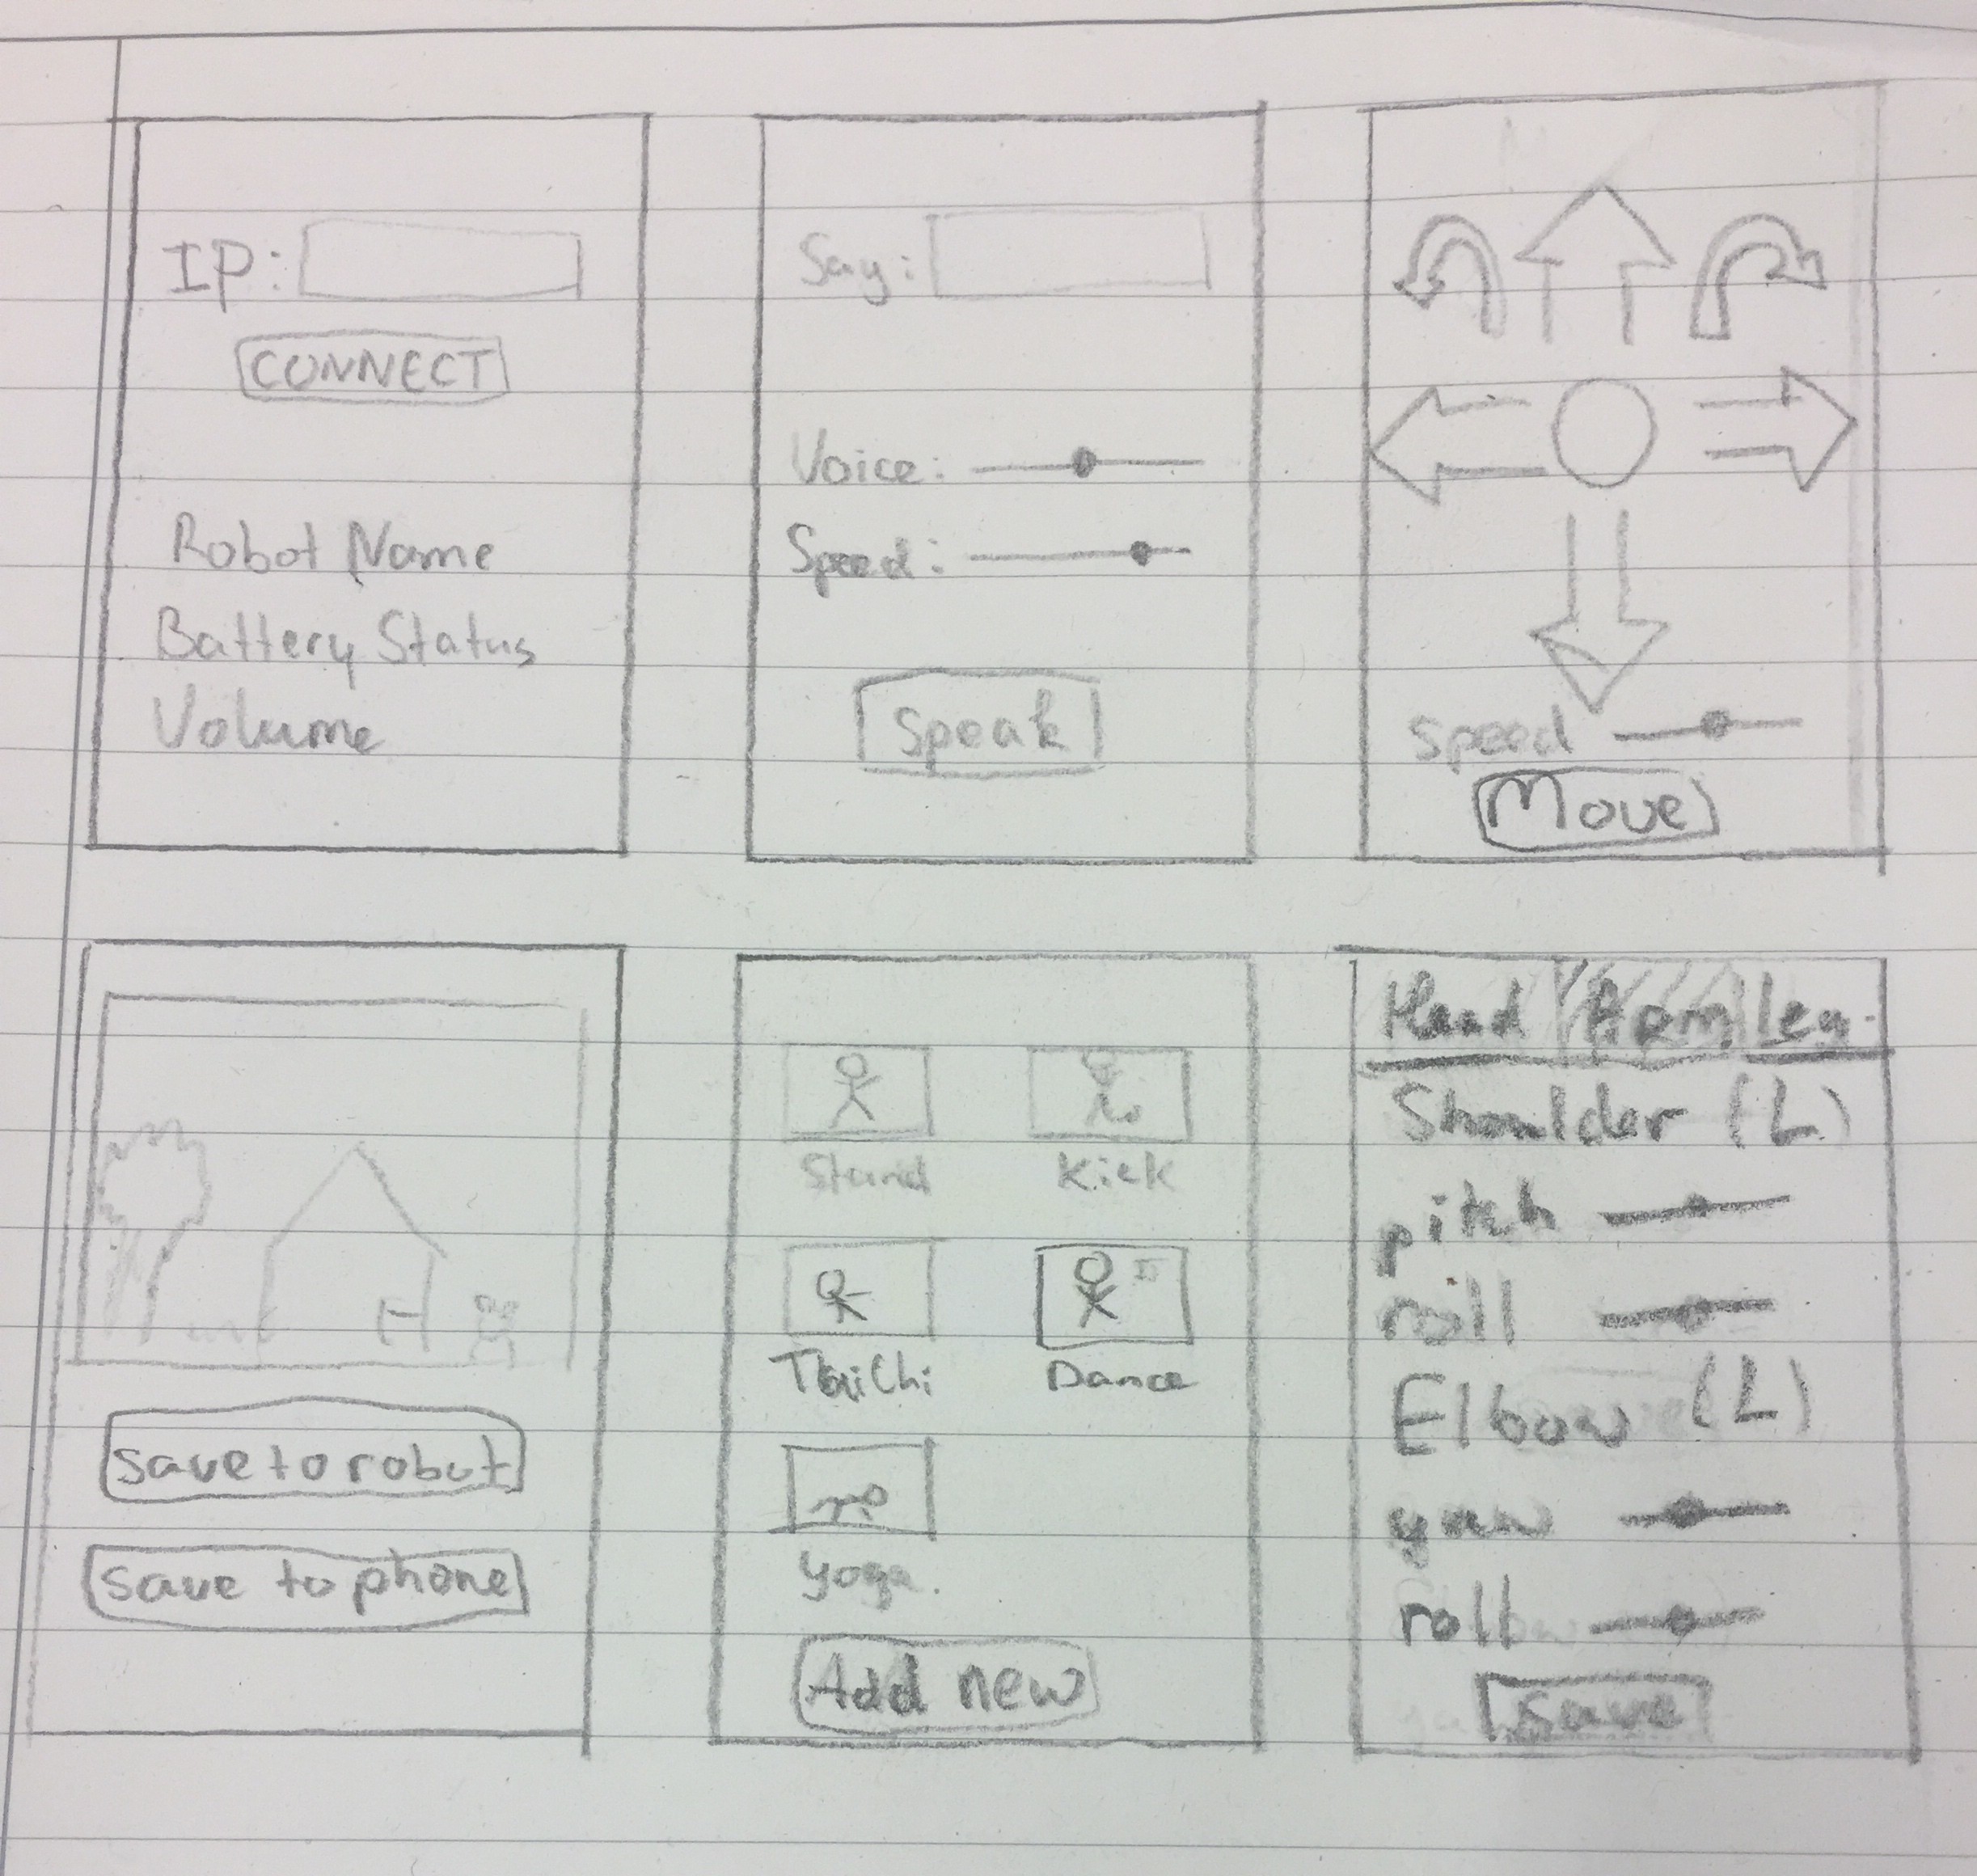 IP:
CONNECT
Robot Name
Battery Status
Volume
Say:
Voice:
Speed:
Speak
speed
Move
save to robot
save to phone
Stand
Kick
TaiChi
Dance
yoga.
Add new
Head Arm Leg.
Shoulder (L)
pitch
roll
Elbow (L)
yaw
roll
Save